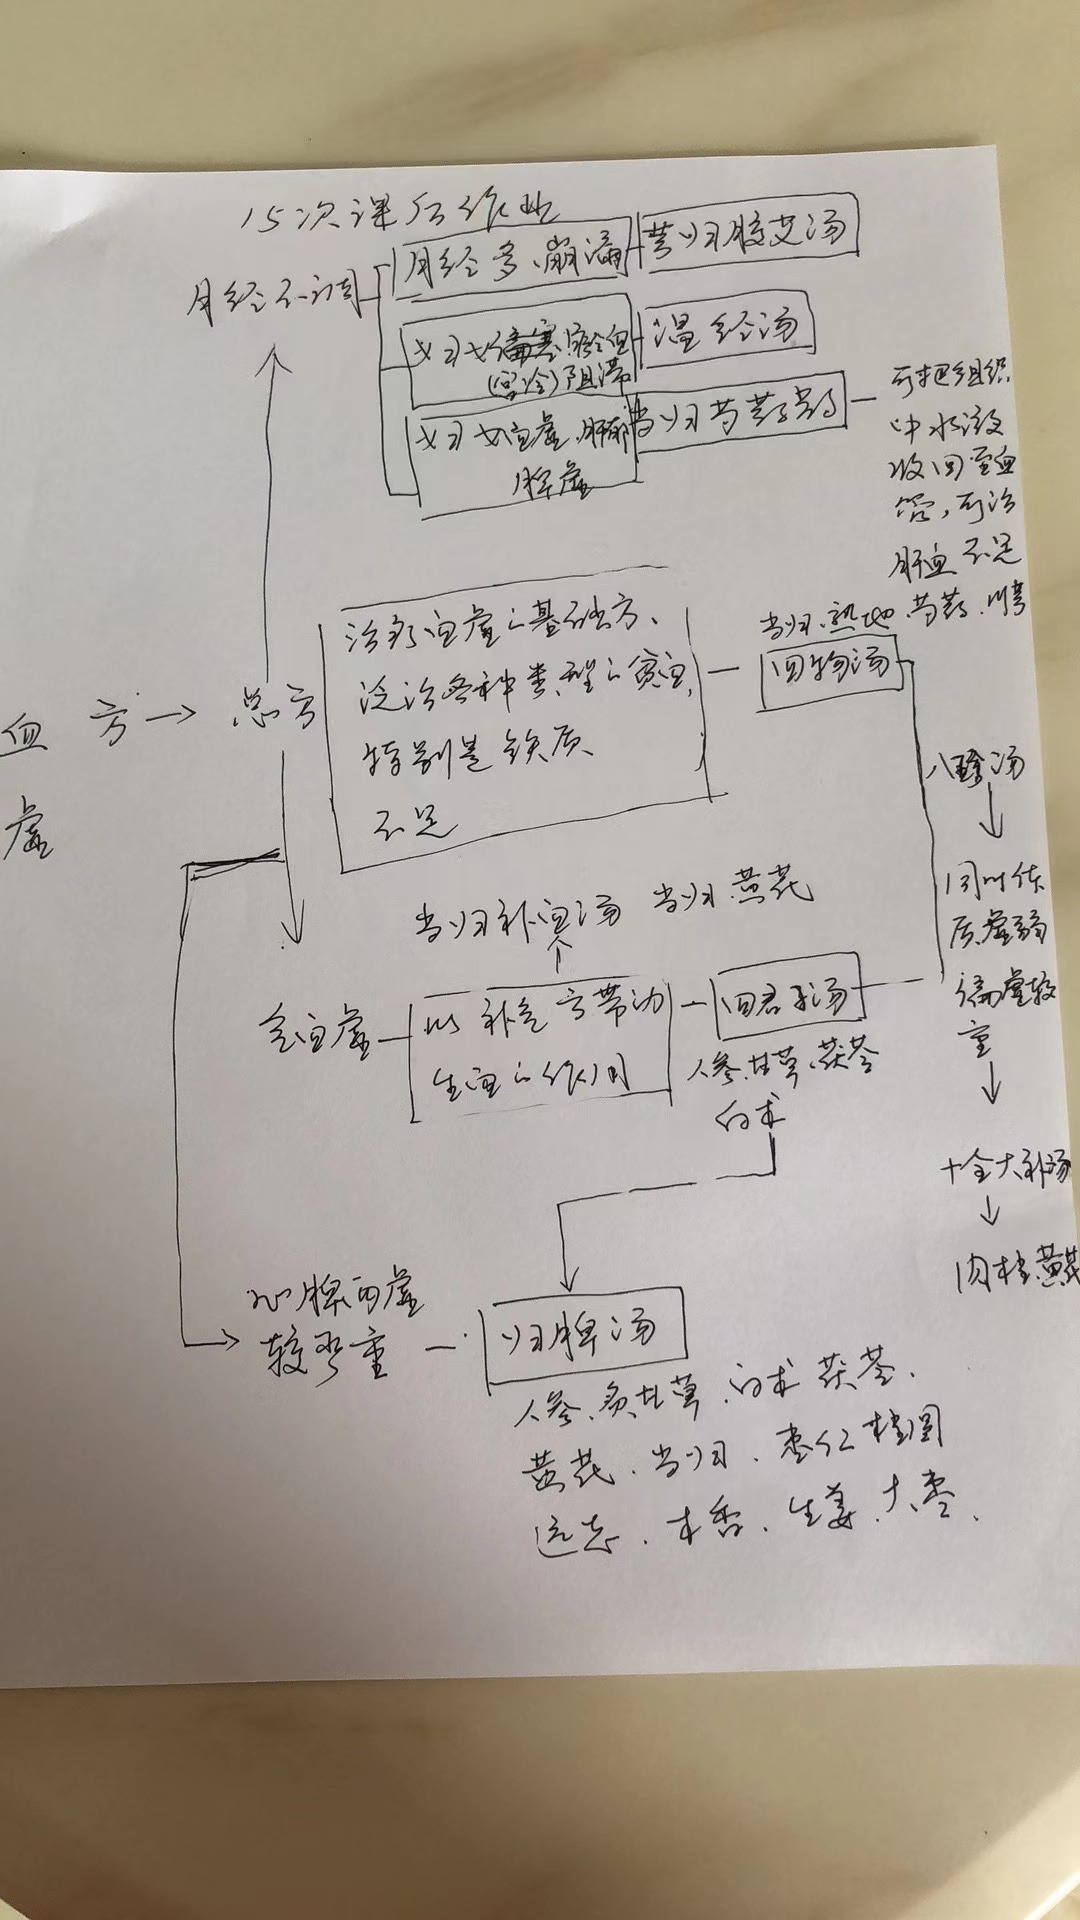 15次课后作业
月经不调
月经多、崩漏
芎归胶艾汤
妇女偏寒、瘀血
(宫冷)阻滞
温经汤
妇女血虚、肝郁
脾虚
当归芍药散
可把组织
中水液
收回至血
管，可治
肝血不足
血 方→总方
虚
治疗血虚之基础方、
泛治各种类型之贫血,
特别是铁质
不足
当归、熟地、芍药、川芎
四物汤
八珍汤
同时体
质虚弱
偏虚较
重
十全大补汤
肉桂、黄芪
当归补血汤 当归、黄芪
气血虚
以补气方带动
生血之作用
四君子汤
人参、甘草、茯苓
白术
心脾两虚
较严重
归脾汤
人参、炙甘草、白术、茯苓、
黄芪、当归、枣仁、桂圆
远志、木香、生姜、大枣、